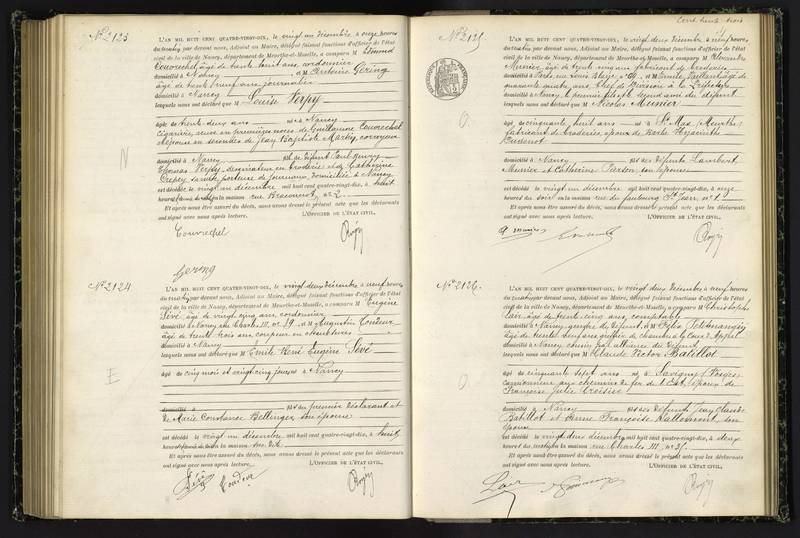 N° 2123
L'AN MIL HUIT CENT QUATRE-VINGT-DIX, le vingt un décembre à onze heures
du matin par devant nous, Adjoint au Maire, délégué faisant fonctions d'officier de l'état
civil de la ville de Nancy, département de Meurthe-et-Moselle, a comparu M Edmond
Couvrechel âgé de trente huit ans, cordonnier
domicilié à Nancy et M Antoine Géring
âgé de trente neuf ans journalier
domicilié à Nancy
lesquels nous ont déclaré que M Louise Verpy
âgée de trente-deux ans née à Nancy
Cigarière, veuve en premières noces de Guillaume Couvrechel
et épouse en secondes de Jean Baptiste Martin, corroyeur
N
domiciliée à Nancy fille de défunt Paul
Thomas Verpy, dessinateur en broderie et de Catherine
sa veuve porteuse de journaux, domiciliée à Nancy
est décédée le vingt un décembre mil huit cent quatre-vingt-dix, à huit
heures du matin en la maison rue Braconnot, n° 2
Et après nous être assuré du décès, nous avons dressé le présent acte que les déclarants
ont signé avec nous après lecture. L'OFFICIER DE L'ÉTAT CIVIL,
Couvrechel
Gering
N° 2124
L'AN MIL HUIT CENT QUATRE-VINGT-DIX, le vingt deux décembre à neuf heures
du matin par devant nous, Adjoint au Maire, délégué faisant fonctions d'officier de l'état
civil de la ville de Nancy, département de Meurthe-et-Moselle, a comparu M Eugène
Sévé âgé de vingt cinq ans, cordonnier
domicilié à Nancy, rue Charles III, n° 19 et M Augustin Toudeur
âgé de trente trois ans coupeur en chaussures
domicilié à Nancy
lesquels nous ont déclaré que M Emile René Eugène Sévé
âgé de cinq mois et vingt cinq jours né à Nancy
E
domicilié à fils du premier déclarant et
de Marie Constance Bellinger son épouse
est décédé le vingt un décembre mil huit cent quatre-vingt-dix, à huit
heures en la maison sus dite
Et après nous être assuré du décès, nous avons dressé le présent acte que les déclarants
ont signé avec nous après lecture. L'OFFICIER DE L'ÉTAT CIVIL,
Sévé Toudeur
Cent trente trois
N° 2125
L'AN MIL HUIT CENT QUATRE-VINGT-DIX, le vingt deux décembre à neuf heures
du matin par devant nous, Adjoint au Maire, délégué faisant fonctions d'officier de l'état
civil de la ville de Nancy, département de Meurthe-et-Moselle, a comparu M Alexandre
Munier, âgé de trente cinq ans fabricant de broderies
domicilié à Paris, rue n° 69 et M Emile Vaillant âgé de
quarante huit ans, Chef de Division à la Préfecture
domicilié à Nancy, le premier fils, le second ami du défunt
lesquels nous ont déclaré que M Nicolas Munier
âgé de cinquante huit ans né à St Max (Meurthe)
fabricant de broderies, époux de Marie Hyacinthe
O
domicilié à Nancy fils des défunts Lambert
Munier et Catherine Pierson, son épouse
est décédé le vingt un décembre mil huit cent quatre-vingt-dix, à onze
heures du soir en la maison rue du faubourg St Jean, n° 1
Et après nous être assuré du décès, nous avons dressé le présent acte que les déclarants
ont signé avec nous après lecture. L'OFFICIER DE L'ÉTAT CIVIL,
A. Munier
N° 2126
L'AN MIL HUIT CENT QUATRE-VINGT-DIX, le vingt deux décembre à neuf heures
du matin par devant nous, Adjoint au Maire, délégué faisant fonctions d'officier de l'état
civil de la ville de Nancy, département de Meurthe-et-Moselle, a comparu M Christophe
Lair, âgé de trente cinq ans, comptable
domicilié à Nancy, gendre du défunt, et M Félix
âgé de trente neuf ans, greffier de chambre à la Cour d'Appel
domicilié à Nancy, cousin par alliance du défunt
lesquels nous ont déclaré que M Claude Victor Batillot
âgé de cinquante sept ans né à Savigny (Vosges)
Camionneur aux chemins de fer de l'Est, époux de
Françoise Julie Croisier
O
domicilié à Nancy fils des défunts Jean Claude
Batillot et Anne Françoise Vallemont, son
épouse
est décédé le vingt deux décembre mil huit cent quatre-vingt-dix, à deux
heures du matin en la maison rue Charles III, n°
Et après nous être assuré du décès, nous avons dressé le présent acte que les déclarants
ont signé avec nous après lecture. L'OFFICIER DE L'ÉTAT CIVIL,
Lair